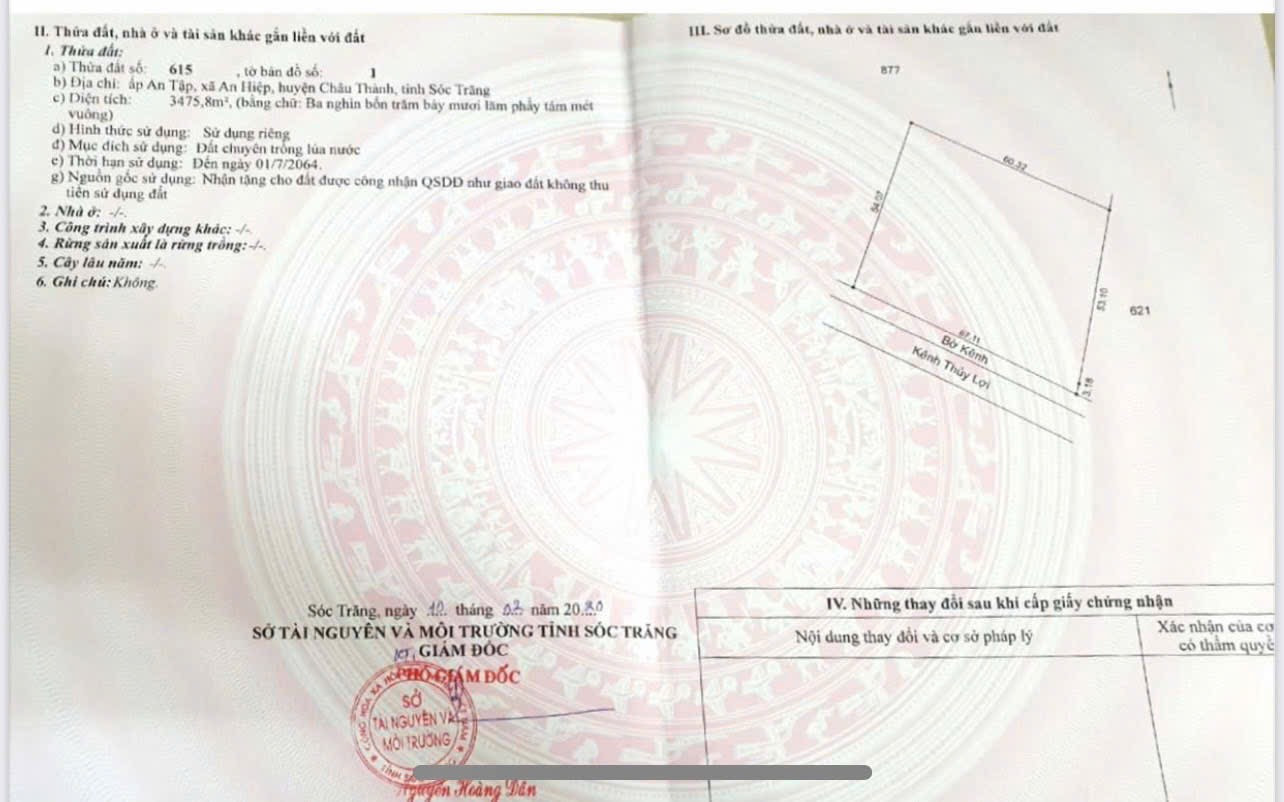 II. Thửa đất, nhà ở và tài sản khác gắn liền với đất
1. Thửa đất:
a) Thửa đất số: 615 , tờ bản đồ số: 1
b) Địa chỉ: ấp An Tập, xã An Hiệp, huyện Châu Thành, tỉnh Sóc Trăng
c) Diện tích: 3475,8m², (bằng chữ: Ba nghìn bốn trăm bảy mươi lăm phẩy tám mét
vuông)
d) Hình thức sử dụng: Sử dụng riêng
đ) Mục đích sử dụng: Đất chuyên trồng lúa nước
e) Thời hạn sử dụng: Đến ngày 01/7/2064.
g) Nguồn gốc sử dụng: Nhận tặng cho đất được công nhận QSDĐ như giao đất không thu
tiền sử dụng đất
2. Nhà ở: -/-.
3. Công trình xây dựng khác: -/-.
4. Rừng sản xuất là rừng trồng: -/-.
5. Cây lâu năm: -/-.
6. Ghi chú: Không.
Sóc Trăng, ngày 12 tháng 03 năm 2020
SỞ TÀI NGUYÊN VÀ MÔI TRƯỜNG TỈNH SÓC TRĂNG
KT. GIÁM ĐỐC
PHÓ GIÁM ĐỐC
SỞ
TÀI NGUYÊN VÀ
MÔI TRƯỜNG
Nguyễn Hoàng Dân
III. Sơ đồ thửa đất, nhà ở và tài sản khác gắn liền với đất
877
60.32
54.07
53.10
621
67.11
Bờ Kênh
Kênh Thủy Lợi
3.18
IV. Những thay đổi sau khi cấp giấy chứng nhận
Nội dung thay đổi và cơ sở pháp lý
Xác nhận của cơ
có thẩm quyề